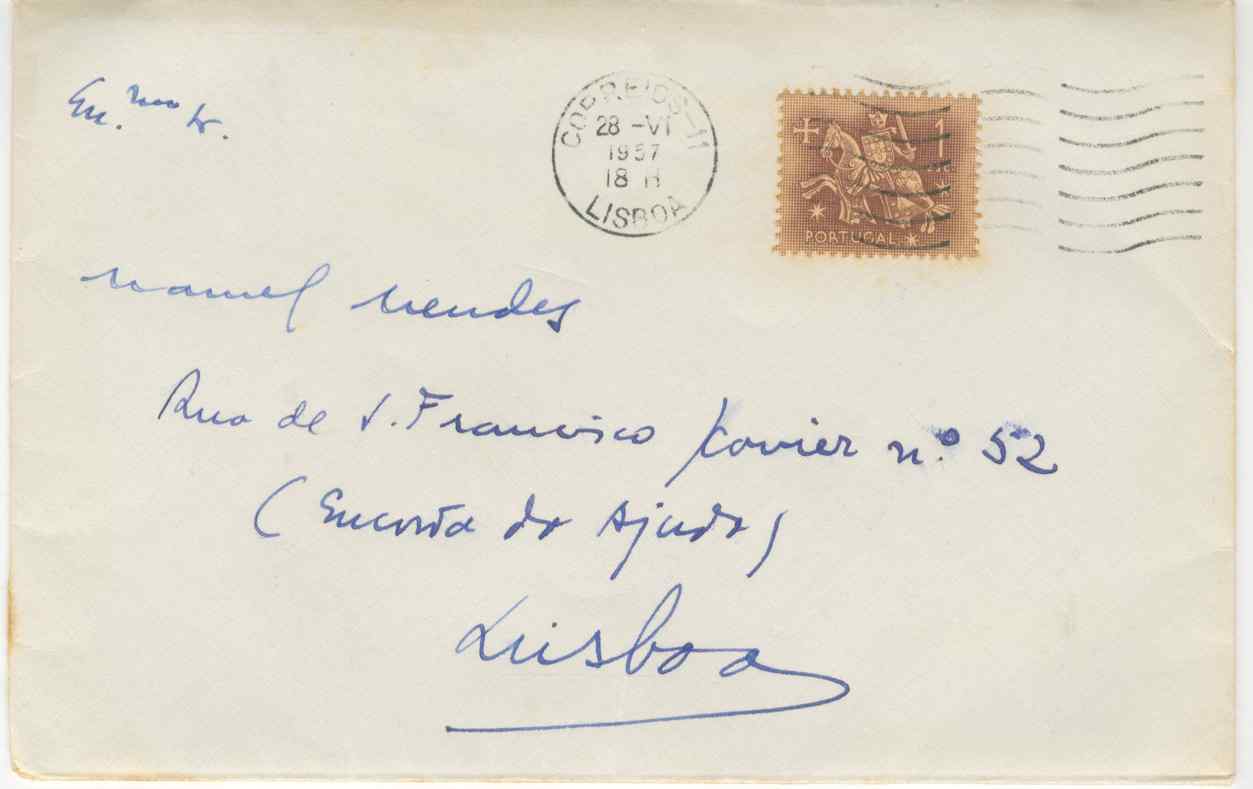 Ex.mo Sr.
CORREIOS-11
28 -VI
1957
18 H
LISBOA
1
PORTUGAL
Manuel Mendes
Rua de S. Francisco Xavier nº 52
(Encosta da Ajuda)
Lisboa